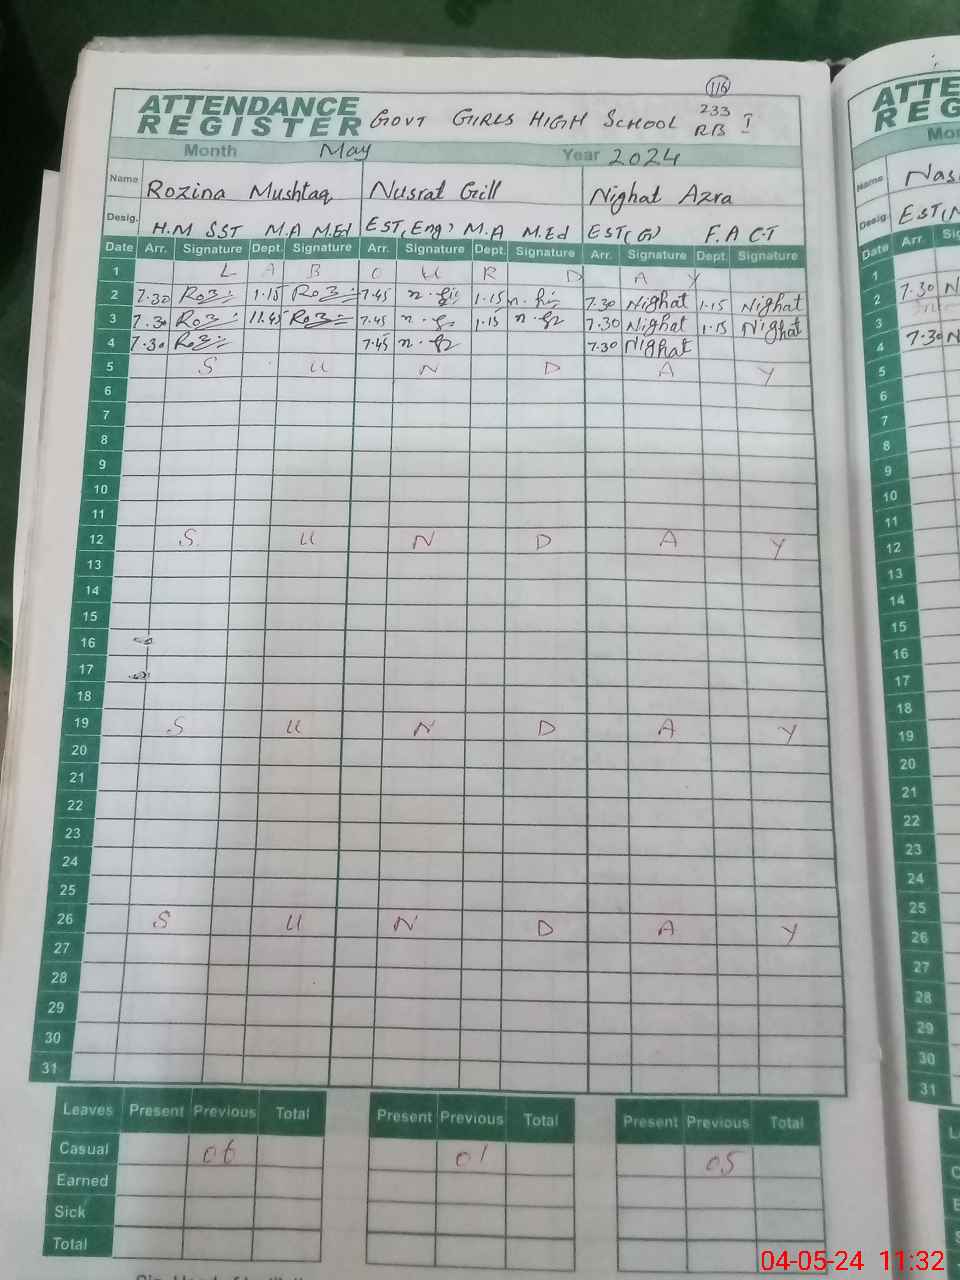 116
ATTENDANCE REGISTER GOVT GIRLS HIGH SCHOOL 233 RB I
Month May Year 2024
Name Rozina Mushtaq Nusrat Gill Nighat Azra
Desig. H.M SST M.A M.Ed EST(Eng) M.A M.Ed EST(G) F.A CT
Date Arr. Signature Dept. Signature Arr. Signature Dept. Signature Arr. Signature Dept. Signature
1 L A B O U R D A Y
2 7.30 1.15 7.45 1.15 7.30 Nighat 1.15 Nighat
3 7.30 11.45 7.45 1.15 7.30 Nighat 1.15 Nighat
4 7.30 7.45 7.30 Nighat
5 S U N D A Y
6
7
8
9
10
11
12 S U N D A Y
13
14
15
16
17
18
19 S U N D A Y
20
21
22
23
24
25
26 S U N D A Y
27
28
29
30
31
Leaves Present Previous Total Present Previous Total Present Previous Total
Casual 06 01 05
Earned
Sick
Total
ATTE
REG
Mo
Name Nas
Desig. EST(
Date Arr. Sig
1
2 7.30 N
3
4 7.30 N
5
6
7
8
9
10
11
12
13
14
15
16
17
18
19
20
21
22
23
24
25
26
27
28
29
30
31
04-05-24 11:32